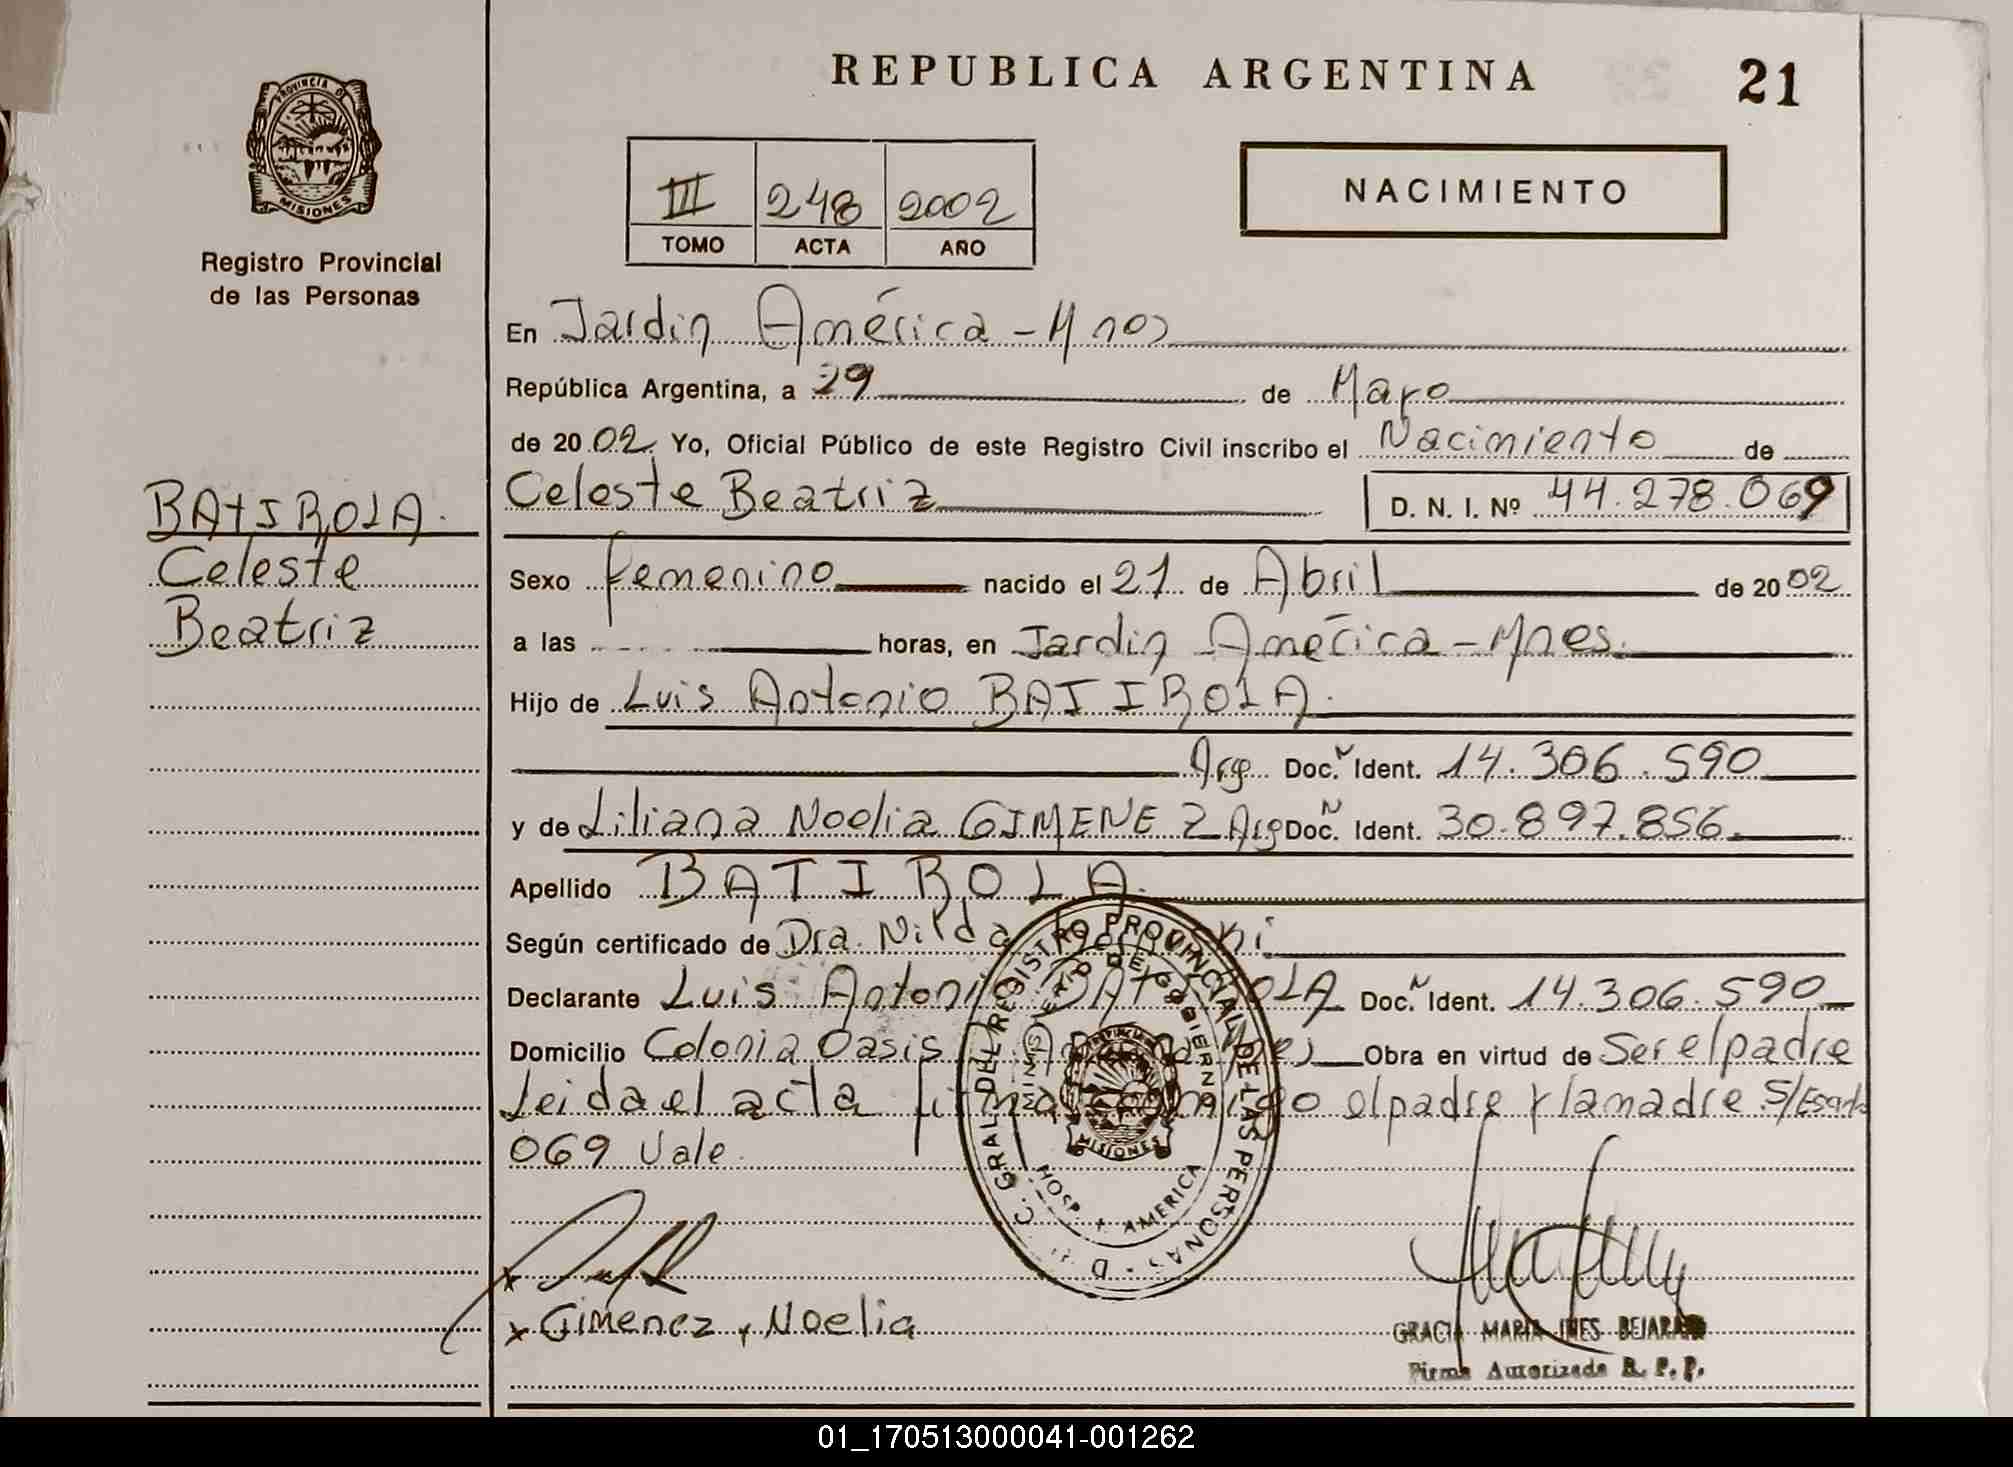 REPUBLICA ARGENTINA
21
PROVINCIA DE
MISIONES
Registro Provincial
de las Personas
III 248 2002
TOMO ACTA AÑO
NACIMIENTO
En Jardin América - Mnes
República Argentina, a 29 de Mayo
de 20 02. Yo, Oficial Público de este Registro Civil inscribo el Nacimiento de
Celeste Beatriz D. N. I. Nº 44.278.069
BATIROLA.
Celeste
Beatriz
Sexo femenino nacido el 21 de Abril de 20 02
a las horas, en Jardin América - Mnes.
Hijo de Luis Antonio BATIROLA.
Arg. Doc. N Ident. 14.306.590
y de Liliana Noelia GIMENEZ Arg Doc. N Ident. 30.897.856.
Apellido BATIROLA.
Según certificado de Dra. Nilda
Declarante Luis Antonio BATIROLA Doc. N Ident. 14.306.590
Domicilio Colonia Oasis Obra en virtud de Ser el padre
Leida el acta firma conmigo el padre y la madre S/
069 Vale.
REGISTRO PROVINCIAL DE LAS PERSONAS
DE GOBIERNO
MISIONES
HOSP. AMERICA
x
x Gimenez, Noelia
GRACIA MARIA INES BEJARANO
Firma Autorizada R. P. P.
01_170513000041-001262